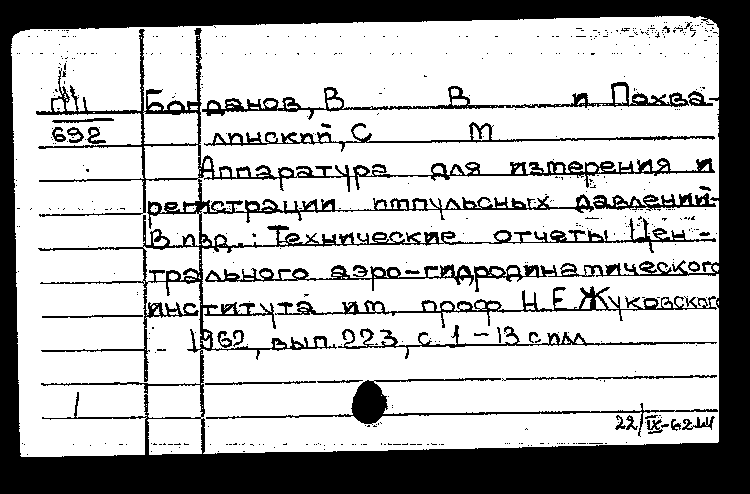 Богданов, В В и Похва-
692
линский, С М
Аппаратура для измерения и
регистрации импульсных давлений-
В изд.: Технические отчеты Цен-
трального аэро-гидродинамического
института им. проф. Н.Е Жуковского
1962, вып. 223, с 1-13 с илл
22/IX-62